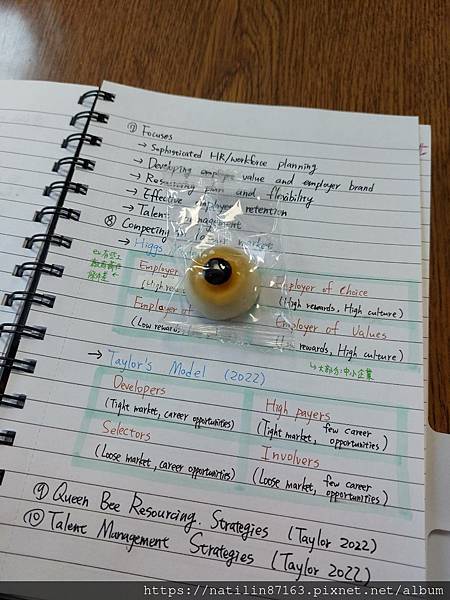 ⑦ Focuses
→ Sophosticated HR/workforce planning
→ Developing employee value and employer brand
→ Resourcing plan and flexibility
→ Effective employee retention
→ Talent management
⑧ Competing in labour market
→ Higgs
Employer
(High rewards
Employer of Choice
(High rewards, High culture)
Employer of
(Low rewards,
Employer of Values
(Low rewards, High culture)
↳ 大部分中小企業
→ Taylor's Model (2022)
Developers
(Tight market, career opportunities)
High payers
(Tight market, few career opportunities)
Selectors
(Loose market, career opportunities)
Involvers
(Loose market, few career opportunities)
⑨ Queen Bee Resourcing. Strategies (Taylor 2022)
⑩ Talent Management Strategies (Taylor 2022)
https://natilin87163.pixnet.net/album